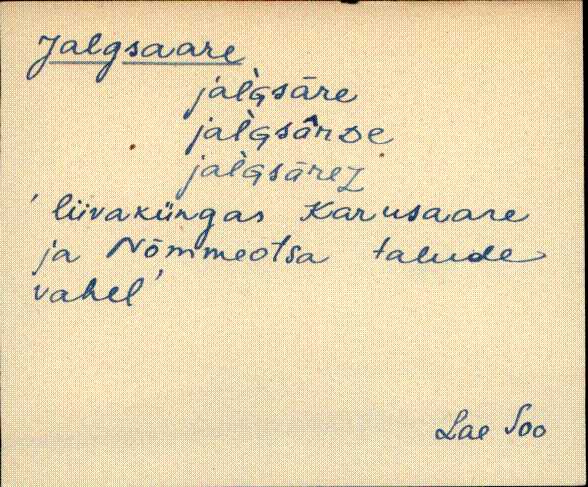 Jalgsaare
jal̀Gsāre
jal̀Gsârᴅe
jal̀Gsārez
'liivaküngas Karusaare
ja Nõmmeotsa talude
vahel'
Lae Soo